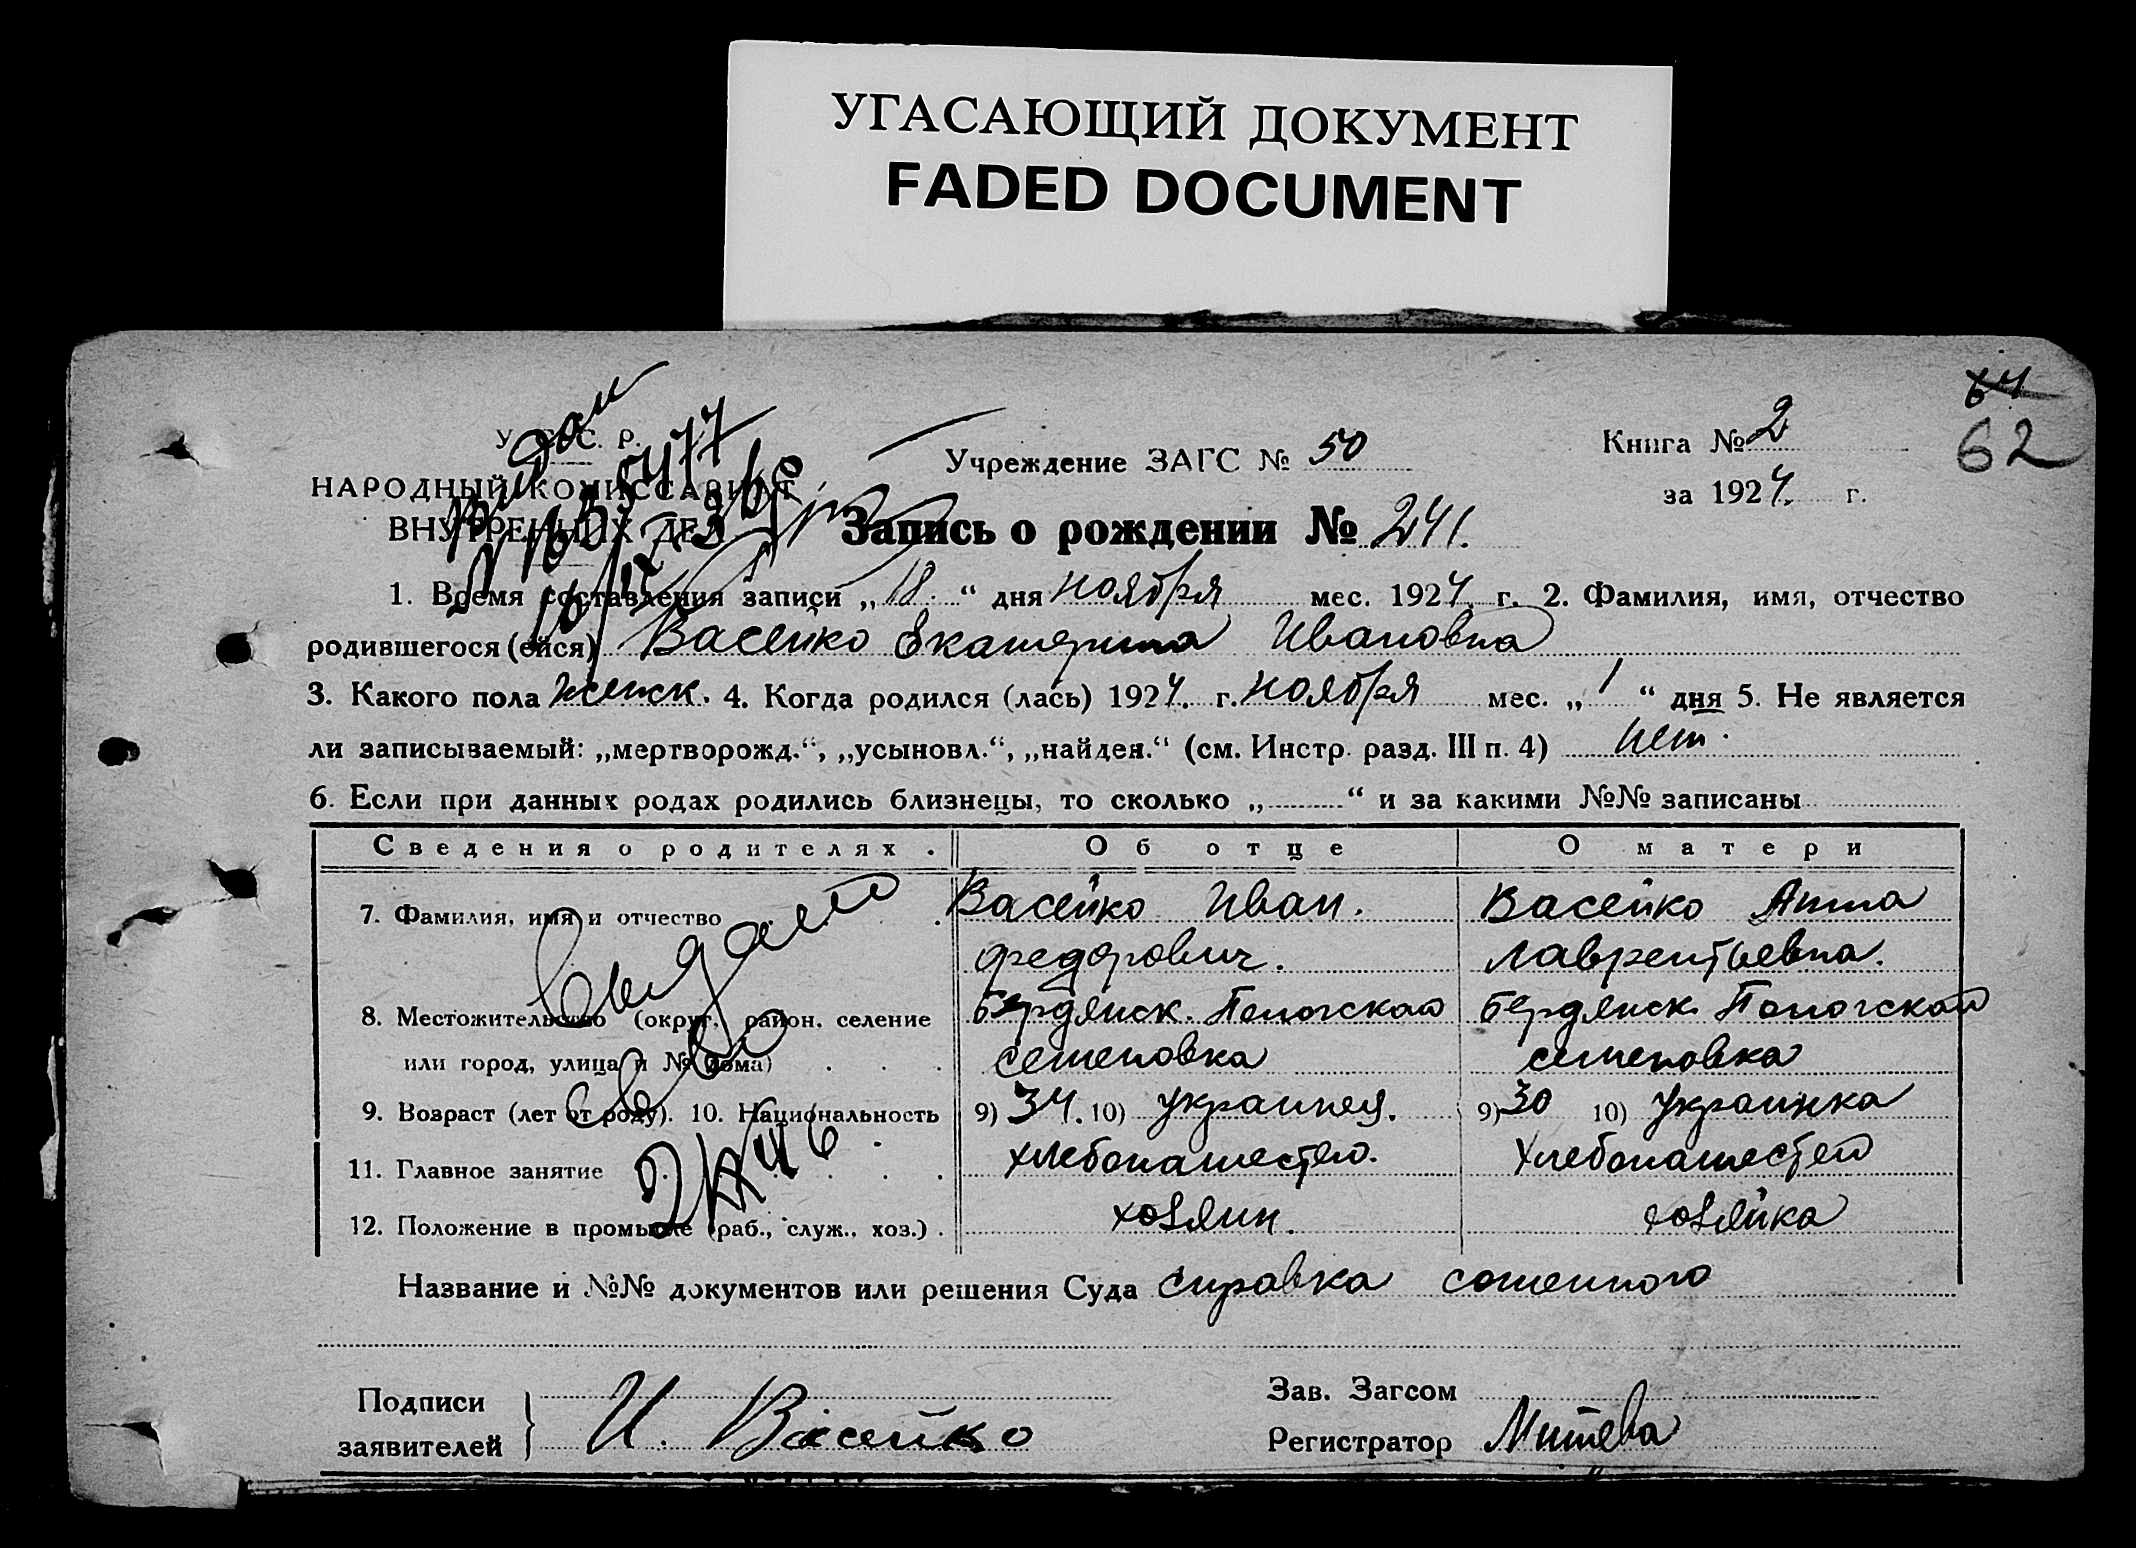 УГАСАЮЩИЙ ДОКУМЕНТ
FADED DOCUMENT
64
62
У. С. С. Р.
НАРОДНЫЙ КОМИССАРИАТ
ВНУТРЕННИХ ДЕЛ
Учреждение ЗАГС № 50
Книга № 2
за 1924. г.
Запись о рождении № 241.
1. Время составления записи „18.“ дня ноября мес. 1924. г. 2. Фамилия, имя, отчество
родившегося (ейся) Васейко Екатерина Ивановна
3. Какого пола женск. 4. Когда родился (лась) 1924. г. ноября мес. „1“ дня 5. Не является
ли записываемый: „мертворожд.“, „усыновл.“, „найден.“ (см. Инстр. разд. III п. 4) нет.
6. Если при данных родах родились близнецы, то сколько „..........“ и за какими №№ записаны
Сведения о родителях. Об отце О матери
7. Фамилия, имя и отчество Васейко Иван. Васейко Анна
федорович. Лаврентьевна.
8. Местожительство (округ, район, селение Бердянск. Пологской Бердянск. Пологской
или город, улица и № дома) семеновка семеновка
9. Возраст (лет от роду). 10. Национальность 9) 34. 10) украинец. 9) 30 10) Украинка
11. Главное занятие хлебопашество. Хлебопашество
12. Положение в промысле (раб., служ., хоз.) хозяин. хозяйка
Выдано
Название и №№ документов или решения Суда справка
Подписи
заявителей } И. Васейко
Зав. Загсом
Регистратор